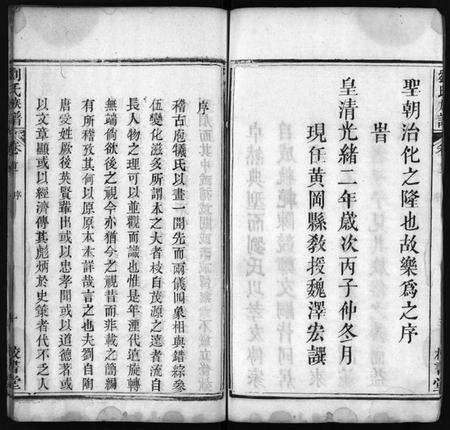 聖朝治化之隆也故樂爲之序
旹
皇清光緒二年歲次丙子仲冬月
現任黃岡縣敎授魏澤宏譔
序
稽古庖犧氏以畫一開先而兩儀四象相與錯綜參
伍變化滋多所謂木之大者枝自茂源之遠者流自
長人物之理可以並觀而識也惟是年湮代遠旋轉
無端倘欲後之視今亦猶今之視昔而非載之簡編
有所稽攷其何以原原本本詳哉言之也夫劉自陶
唐受姓厥後英賢輩出或以忠孝開或以道德著或
以文章顯或以經濟傳其彪炳於史策者代不乏人
劉氏族譜
卷首
序
校書堂